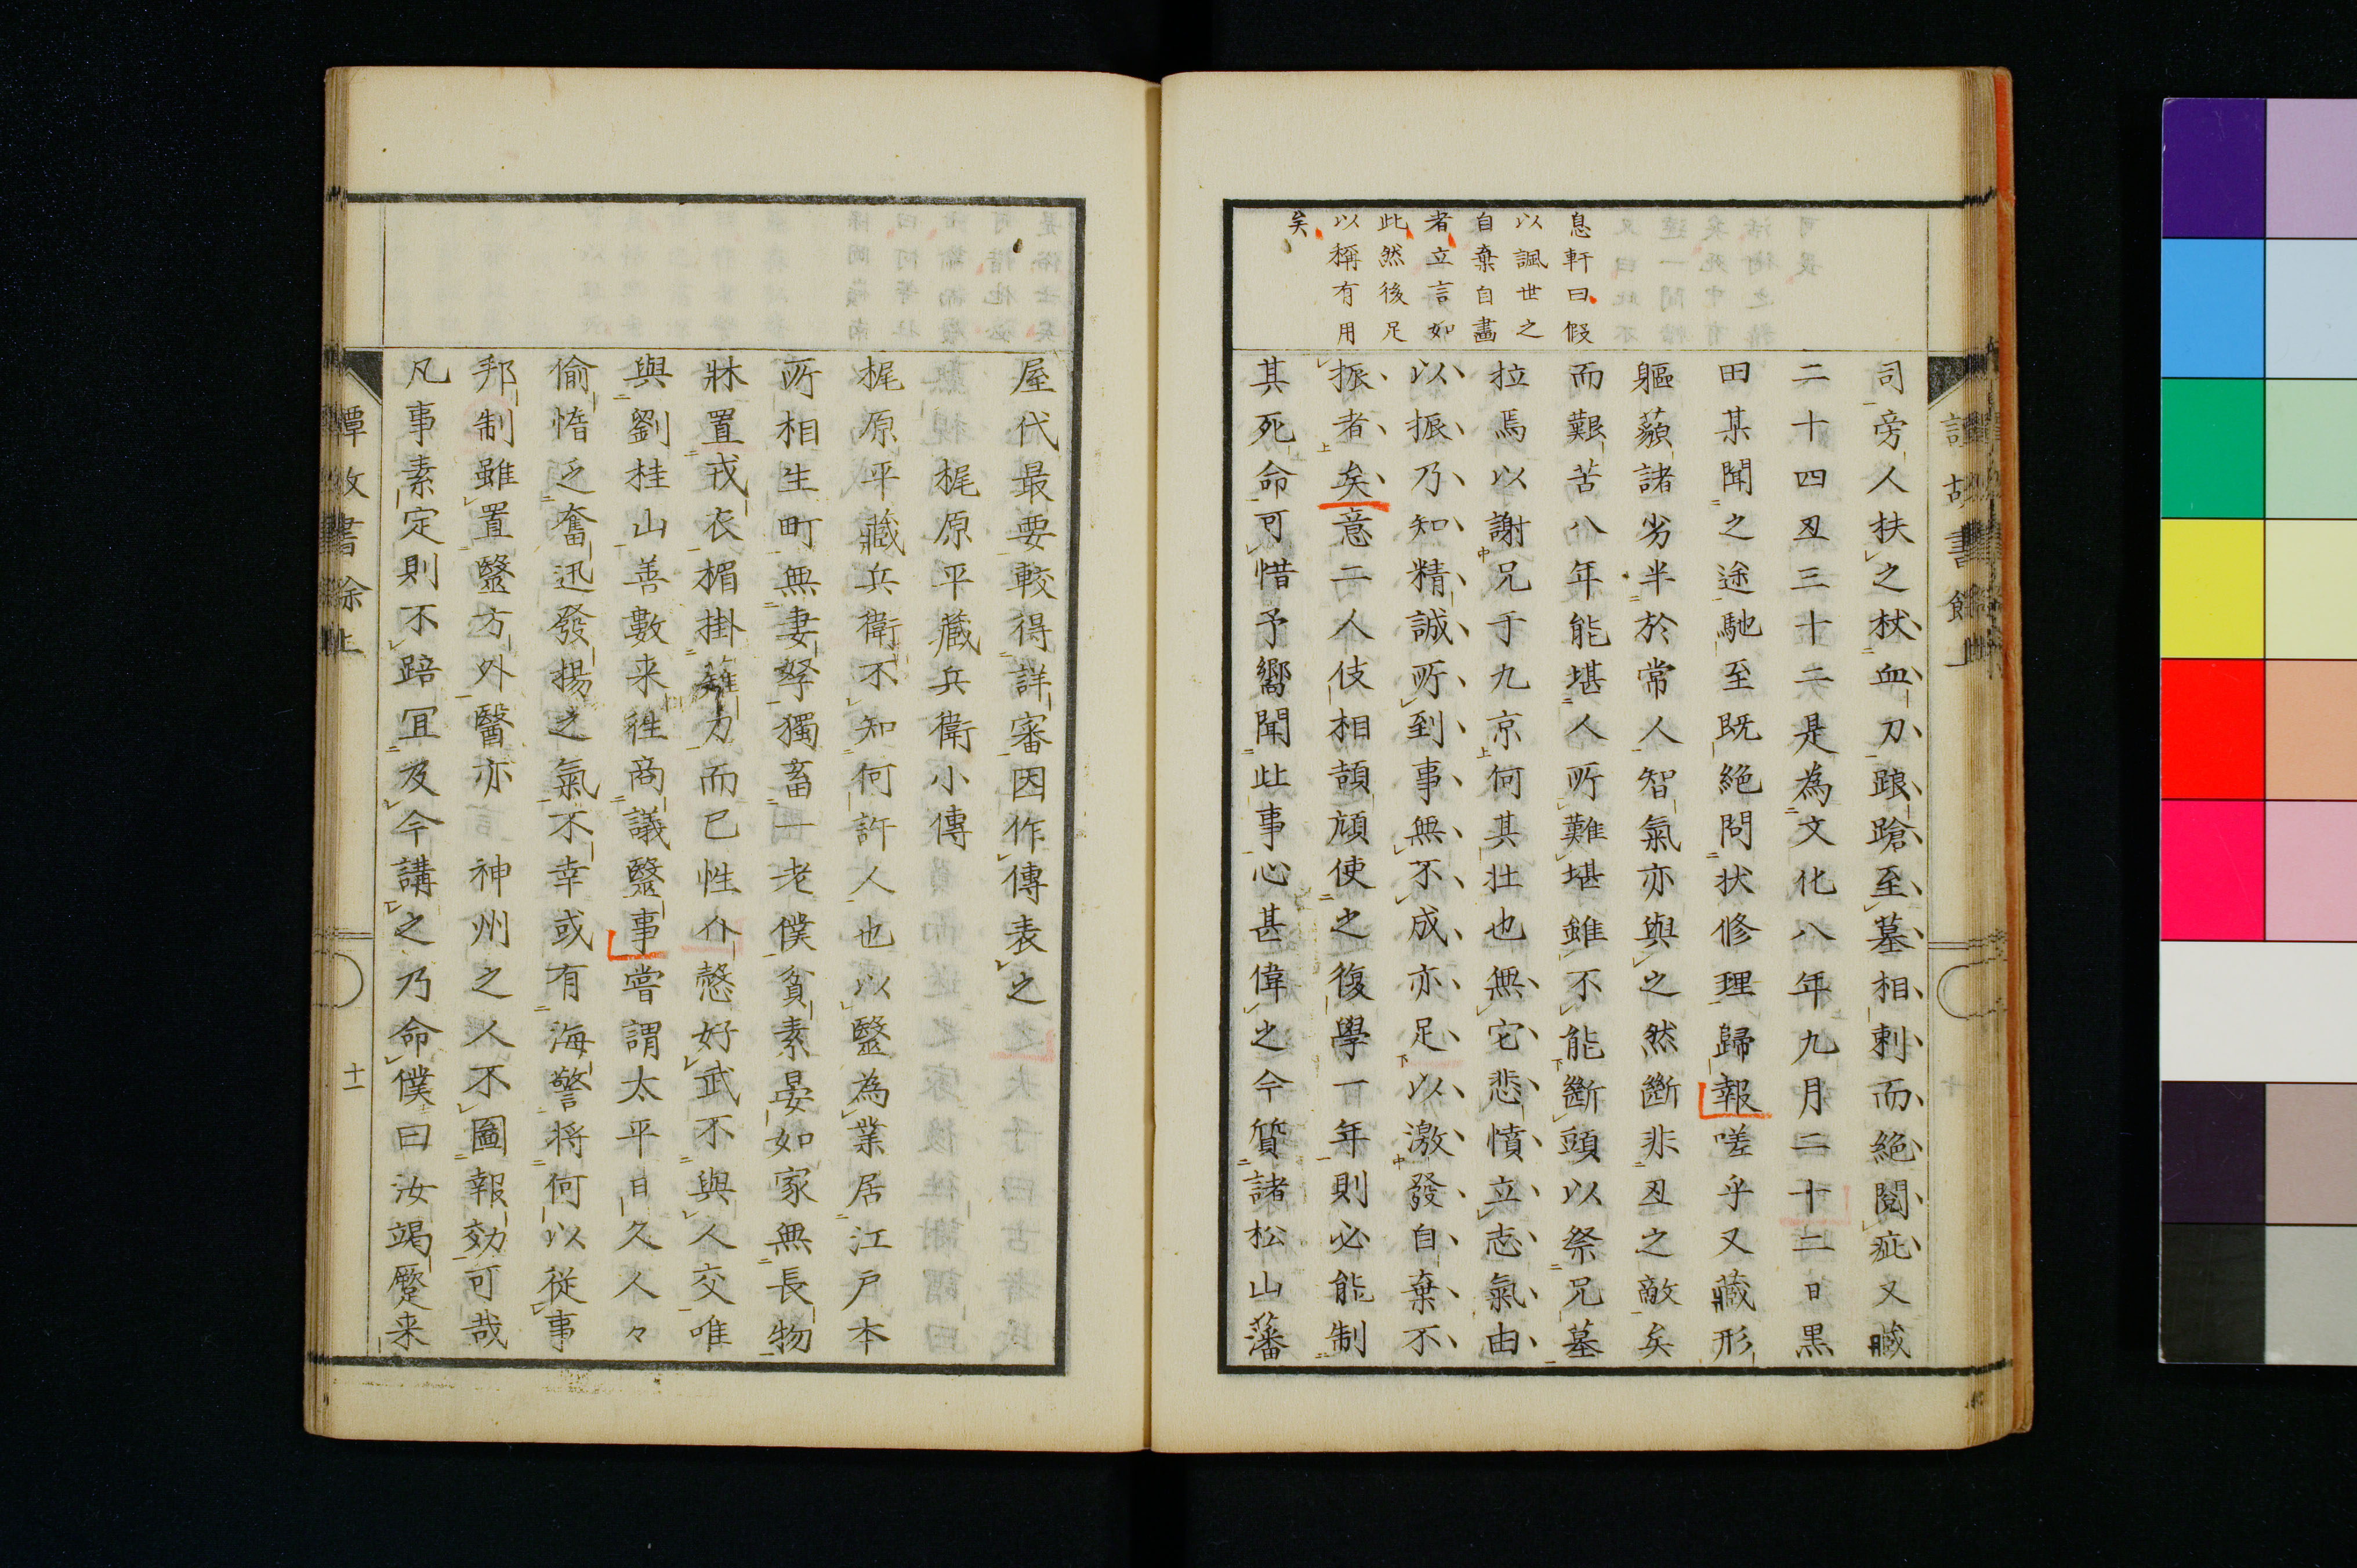 息軒曰假
以諷世之
自棄自畫
者立言如
此然後足
以稱有用
矣
司旁人扶之杖血刀踉蹌至墓相刺而絶閱疵又臧
二十四丑三十二是為文化八年九月二十二日黒
田某聞之途馳至既絶問状修理歸報嗟乎又藏形
軀藐諸劣半於常人智氣亦與之然斷非丑之敵矣
而艱苦八年能堪人所難堪雖不能斷頭以祭兄墓
拉焉以謝兄于九京何其壮也無它悲憤立志氣由
以振乃知精誠所到事無不成亦足以激發自棄不
振者矣意二人伎相頡頏使之復學一年則必能制
其死命可惜予嚮聞此事心甚偉之今質諸松山藩
屋代最要較得詳審因作傳表之
梶原平藏兵衛小傳
梶原平藏兵衛不知何許人也以毉為業居江戸本
所相生町無妻孥獨畜一老僕貧素晏如家無長物
牀置戎衣楣掛雞刀而已性介慤好武不與人交唯
與劉桂山善數来往商議毉事嘗謂太平日久人々
偷惰乏奮迅發揚之氣不幸或有海警将何以従事
邦制雖置毉方外醫亦神州之人不圖報効可哉
凡事素定則不踣冝及今講之乃命僕曰汝竭蹷来
十一